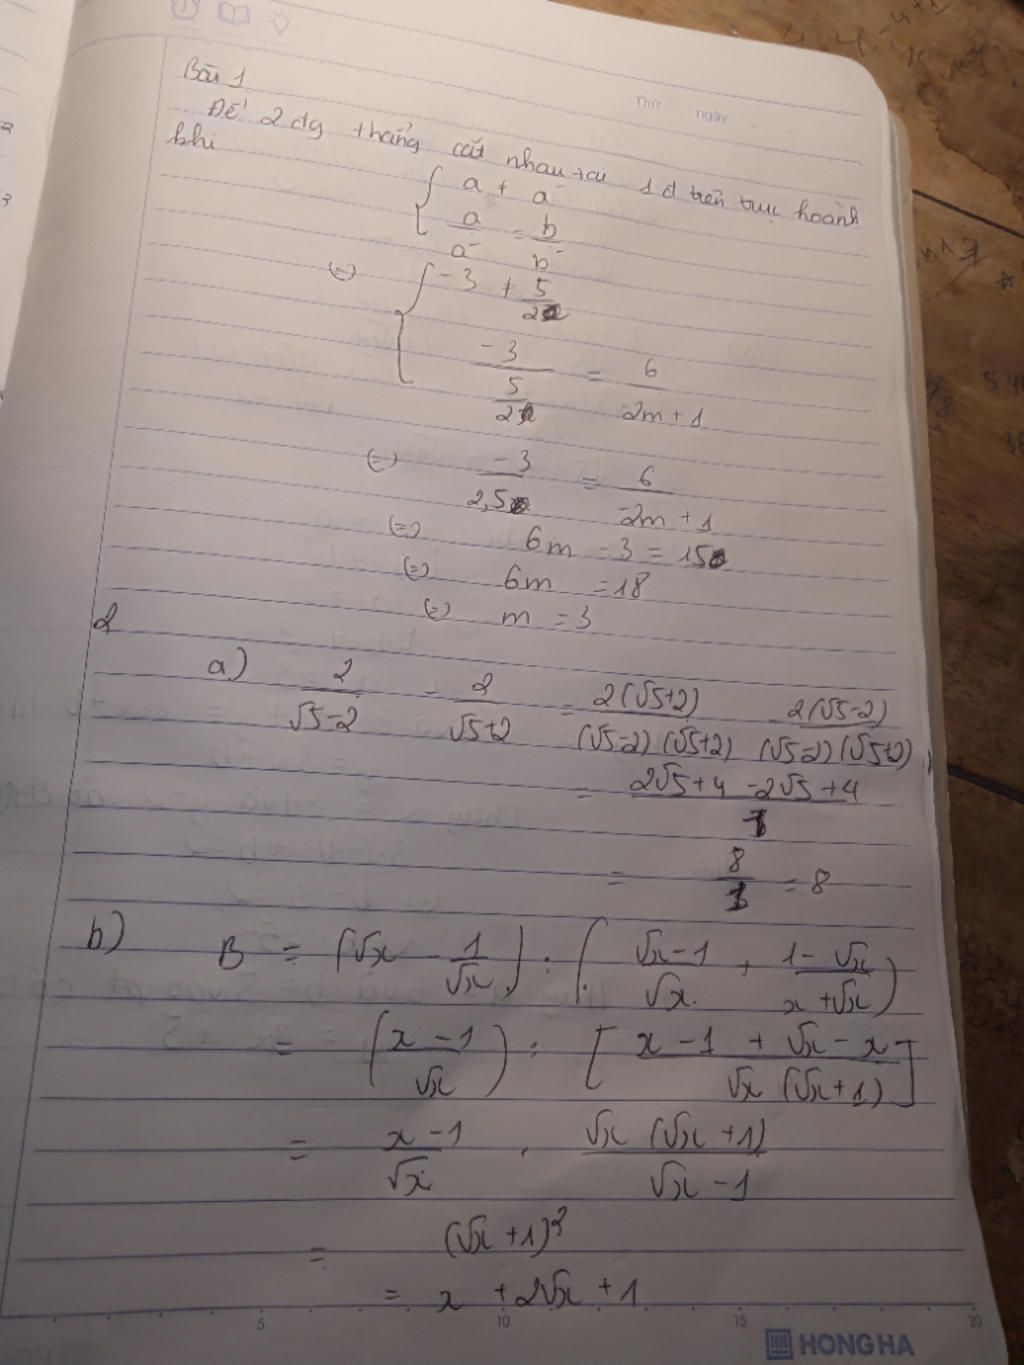 Thứ ngày
Bài 1
Để 2 đg thẳng cắt nhau tại 1 đ trên trục hoành
khi
{ a ≠ a'
a/a' = b/b'
(=) { -3 ≠ 5/2
-3/(5/2) = 6/(-2m + 1)
(=) -3/2,5 = 6/(-2m + 1)
(=) 6m - 3 = 15
(=) 6m = 18
(=) m = 3
2
a) 2/(√5-2) - 2/(√5+2) = 2(√5+2)/((√5-2)(√5+2)) 2(√5-2)/((√5-2)(√5+2))
= (2√5+4 -2√5+4)/1
= 8/1 = 8
b) B = (√x - 1/√x) : ((√x-1)/√x + (1-√x)/(x+√x))
= ((x-1)/√x) : [(x-1 + √x - x)/(√x (√x+1))]
= (x-1)/√x . √x (√x+1)/(√x-1)
= (√x+1)²
= x + 2√x + 1
5 10 15 20
HONG HA